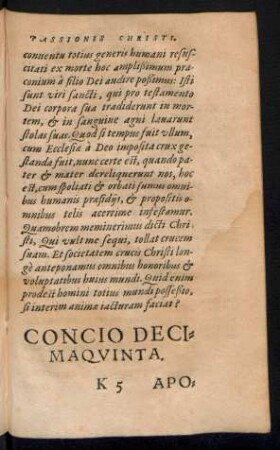 PASSIONIS CHRISTI.
conuentu totius generis humani resus-
citati ex morte hoc amplißimum præ-
conium à filio Dei audire poßimus: Isti
sunt viri sancti, qui pro testamento
Dei corpora sua tradiderunt in mor-
tem, & in sanguine agni lauarunt
stolas suas. Quòd si tempus fuit vllum,
cum Ecclesiæ à Deo imposita crux ge-
standa fuit, nunc certe est, quando pa-
ter & mater dereliquerunt nos, hoc
est, cum spoliati & orbati sumus omni-
bus humanis præsidijs, & propositi
omnibus telis acerrime infestamur.
Quamobrem meminerimus dicti Chri-
sti, Qui vult me sequi, tollat crucem
suam. Et societatem crucis Christi lon-
gè anteponamus omnibus honoribus &
voluptatibus huius mundi. Quid enim
prodest homini totius mundi possessio,
si interim animæ iacturam faciat?
CONCIO DECI-
MAQVINTA.
K 5 APO-